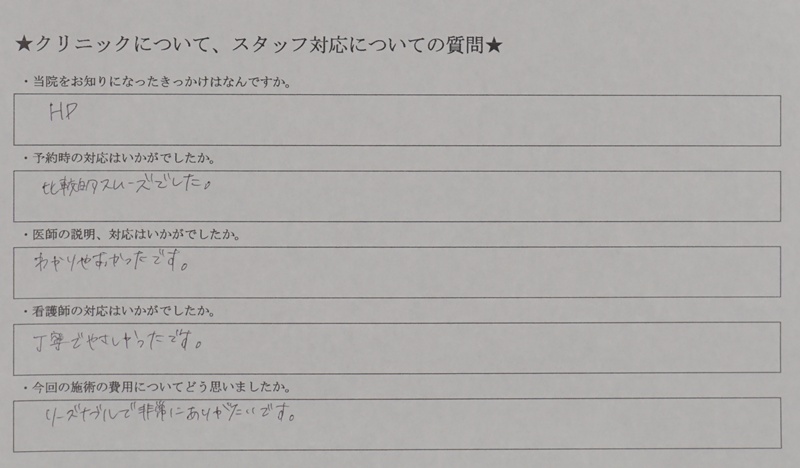 ★クリニックについて、スタッフ対応についての質問★
・当院をお知りになったきっかけはなんですか。
HP
・予約時の対応はいかがでしたか。
比較的スムーズでした。
・医師の説明、対応はいかがでしたか。
わかりやすかったです。
・看護師の対応はいかがでしたか。
丁寧でやさしかったです。
・今回の施術の費用についてどう思いましたか。
リーズナブルで非常にありがたいです。